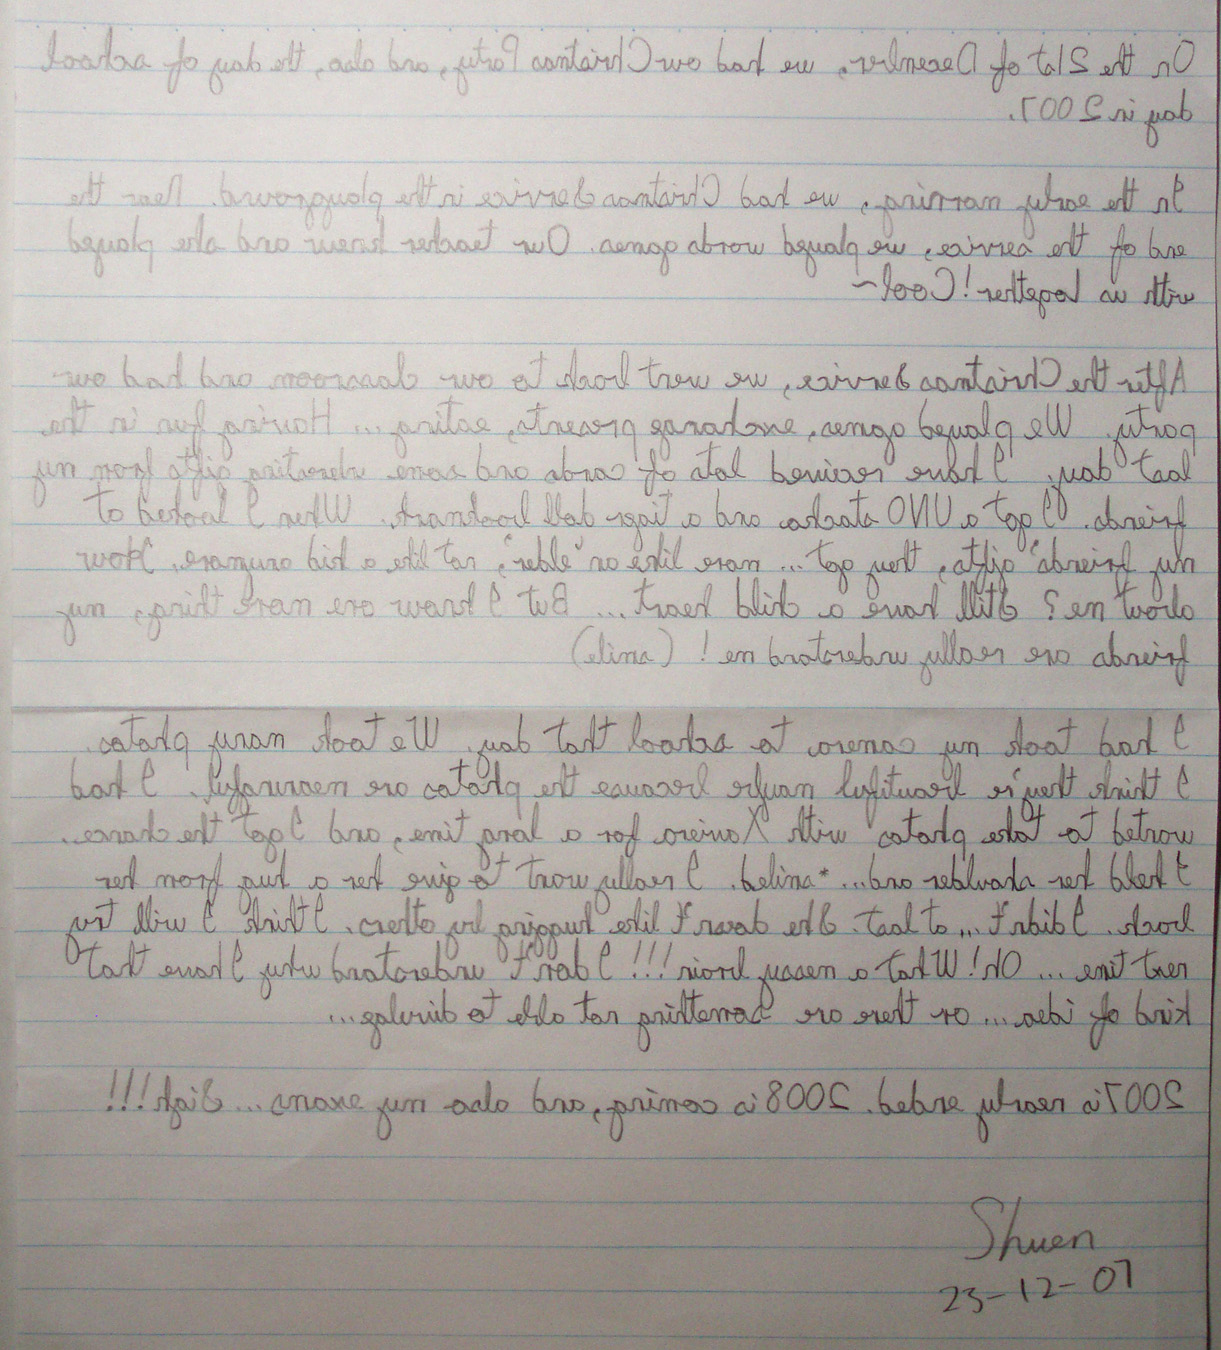 On the 21st of December, we had our Christmas Party, and also, the day of school
day in 2007.
In the early morning, we had Christmas Service in the playground. Near the
end of the service, we played words games. Our teacher knew and she played
with us together! Cool~
After the Christmas Service, we went back to our classroom and had our
party. We played games, exchange presents, eating... Having fun in the
last day. I have recived lots of cards and some interesting gifts from my
friends. I got a UNO stacko and a tiger doll bookmark. When I looked at
my friends' gifts, they got... more like an "elder", not like a kid anymore. How
about me? Still have a child heart... But I know one more thing, my
friends are really understand me! (smile)
I had took my camera to school that day. We took many photos.
I think they're beautiful maybe because the photos are meaningful. I had
wanted to take photos with Xaviera for a long time, and I got the chance.
I held her shoulder and... *smiled. I really want to give her a hug from her
back. I didn't... at last. She doesn't like hugging by others. I think I will try
next time... Oh! What a messy brain!!! I don't understand why I have that
kind of idea... or there are something not able to divulge...
2007 is nearly ended. 2008 is coming, and also my exams... Sigh!!!
Shuen
23-12-07